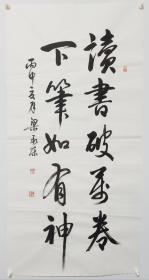 讀書破萬卷
下筆如有神
丙申